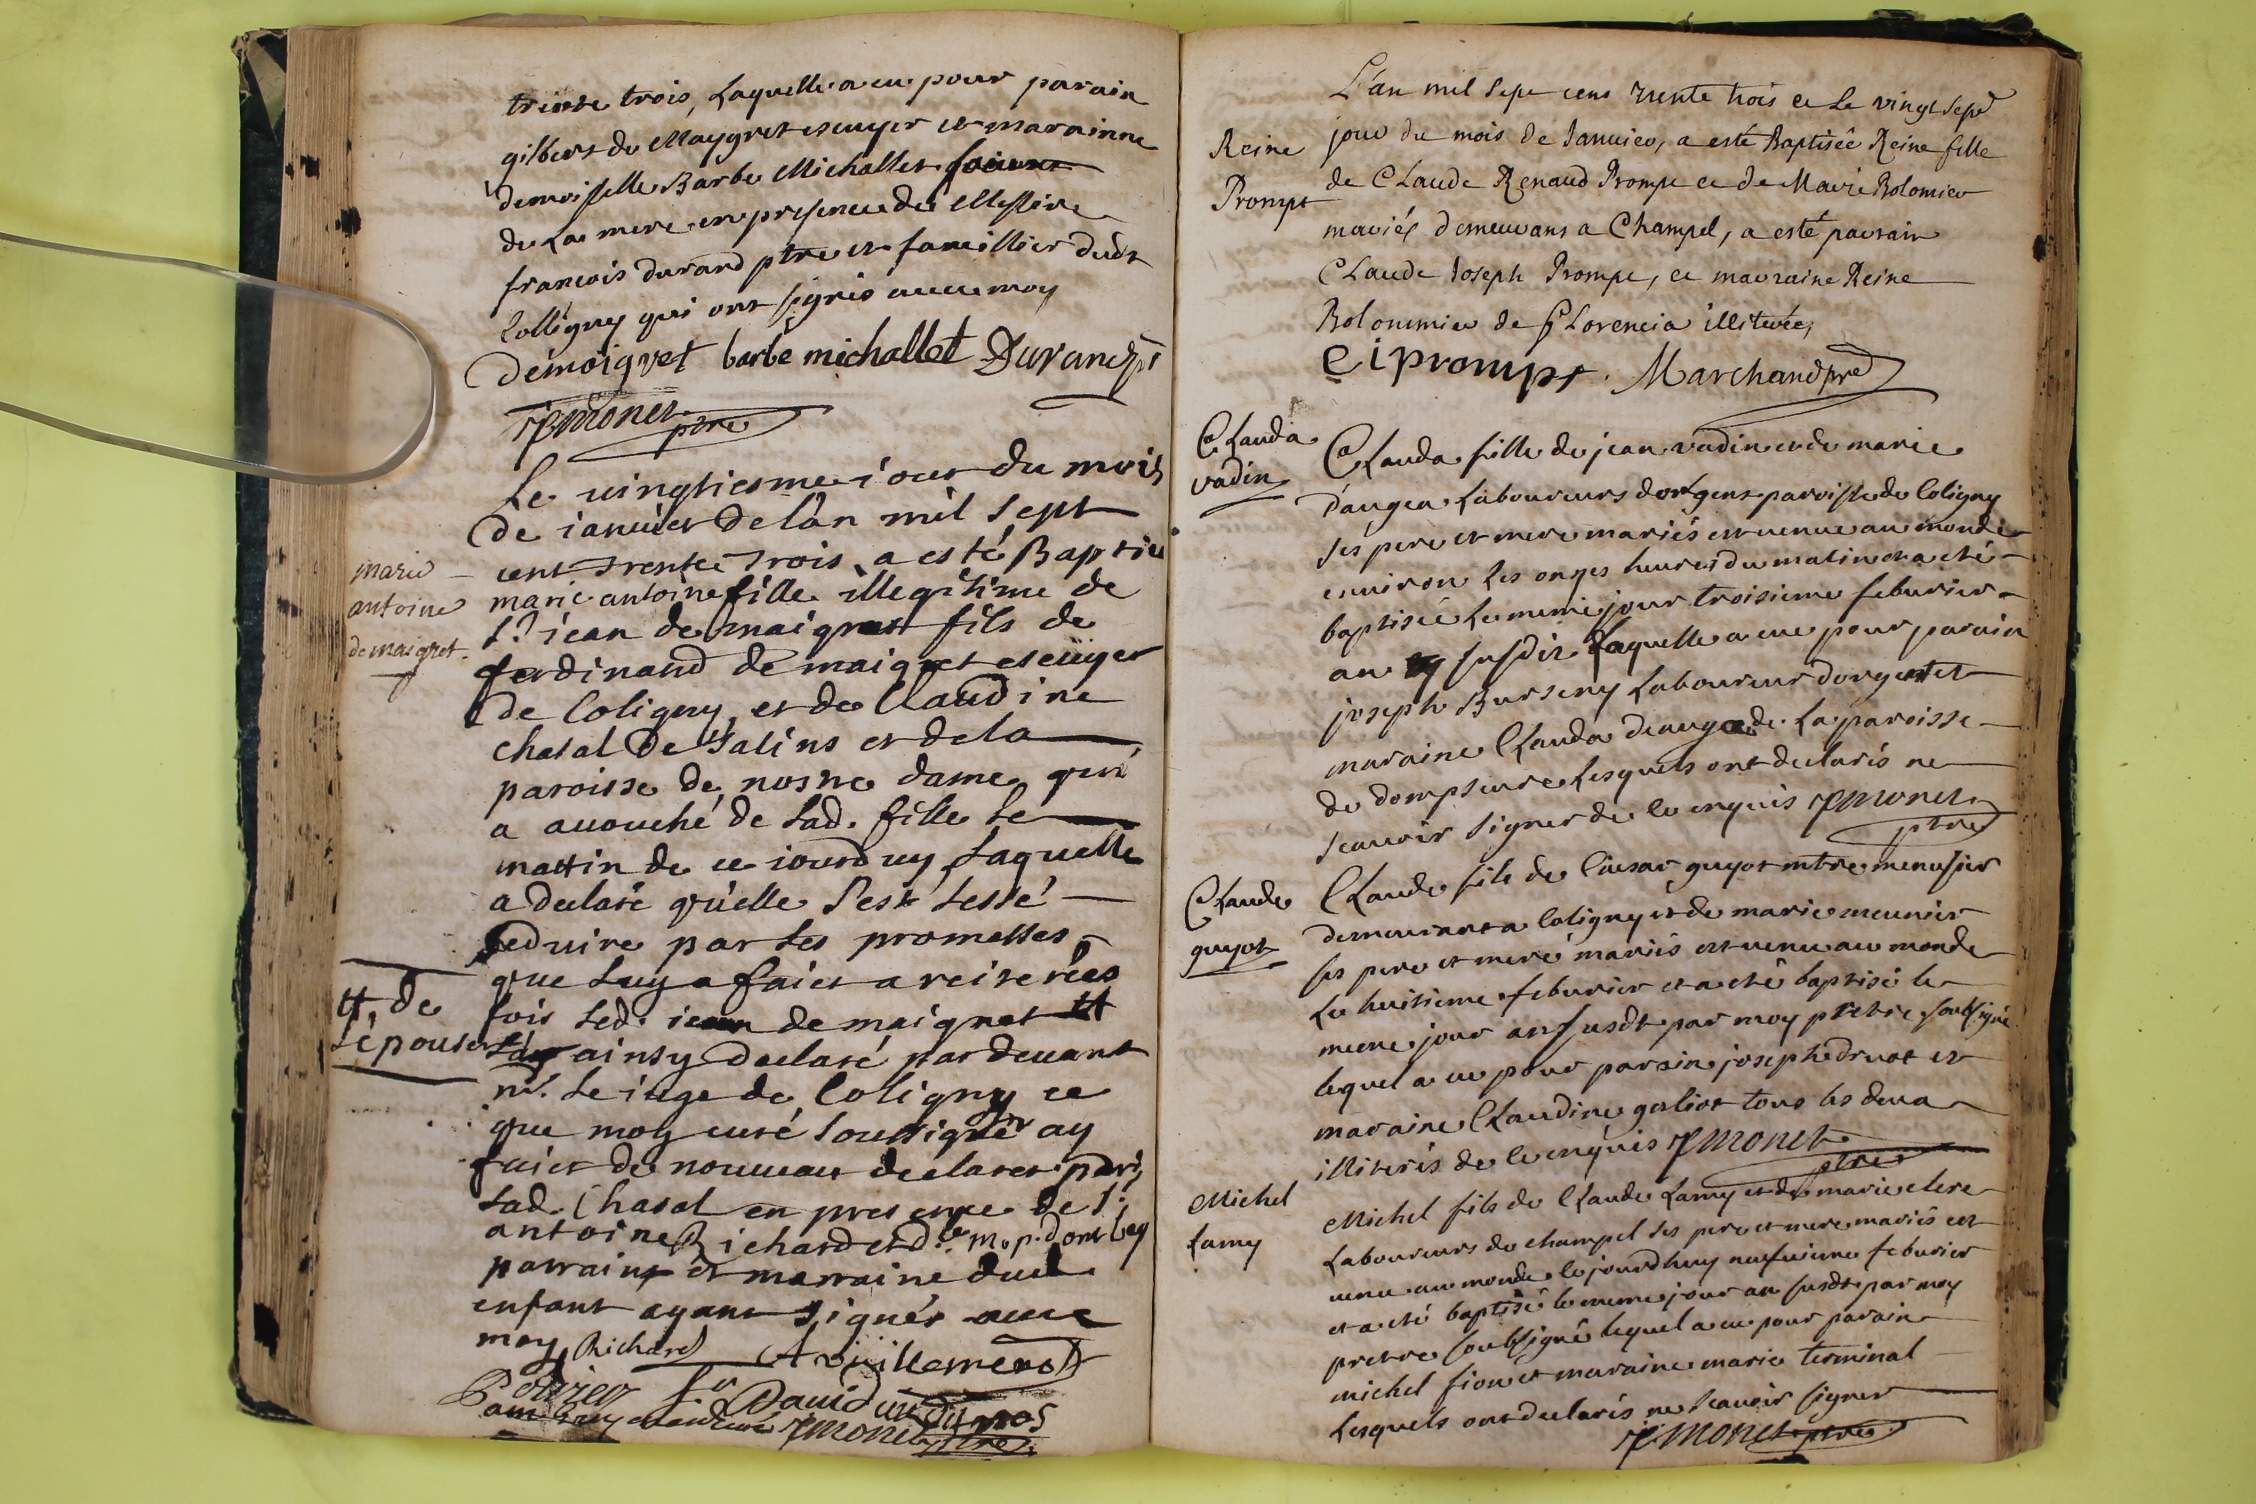 trente trois, Laquelle a eu pour parain
gilbert de Maygret escuyer et marainne
demoiselle Barbe Michallet
de La mere en presence de Messire
francois durand ptre et famillier dudt
Colligny qui ont signés avec moy
demoigret barbe michallet Durand ptr
JP monet ptre
Le vingtiesme iour du mois
de ianvier de l'an mil sept
cent trente trois a esté Baptisé
marie
antoine
demaigret
marie antoine fille illegitime de
sr iean de maigret fils de
ferdinand de maigret escuyer
de Coligny, et de Claudine
chatal de Salins et de la
paroisse de nostre dame qui
a acouché de Lad. fille le
mattin de ce iourdhuy Laquelle
a declaré qu'elle s'est lessé
seduire par les promesses
que Luy a faict a reiterées
fois Led. iean de maigret #
#, de
L'épouser
ainsy declaré pardevant
mr. le iuge de Coligny ce
que moy curé soussigné ay
faict de nouveau declarer par
Lad. Chatal en presence de sr
antoine Richard et de m. p. dont Ley
parrains et marraine dud
enfant ayant signés avec
moy Richard A vuillemenot
David
JP monet ptre
L'an mil sept cens trente trois et Le vingt sept
Reine
Prompt
jour du mois de Janvier, a esté Baptisée Reine fille
de CLaude Renaud Prompt et de Marie Bolomier
mariés demeurans a Champel, a esté parrain
CLaude Joseph Prompt, et marraine Reine
Bolommier de fLorencia illiterée,
C i prompt. Marchand pre
CLauda
vadin
CLauda fille de jean vadin et de marie
daugea Laboureurs dorgent paroisse de Coligny
ses pere et mere mariés est venue au monde
environ les onzes heures du matin et a eté
baptisée Le meme jour troisieme feburier
an susdit Laquelle a eue pour parain
joseph Burseny Laboureur dorgent et
maraine CLauda deaugea de La paroisse
de dompsure Lesquels ont declarés ne
scavoir signer de ce enquis JP monet
ptre
CLaude
guyot
CLaude fils de Caesar guyot mtre menusier
demeurant a Coligny et de marie meunier
ses pere et mere mariés est venu au monde
Le huitieme feburier et a eté baptisé le
meme jour an susdt par moy pretre soubsigné
lequel a eu pour parain joseph druot et
maraine CLaudine goliot tous les deux
illiterés de ce enquis JP monet
ptre
Michel
Lamy
Michel fils de CLaude Lamy et de marie clere
Laboureurs de champel ses pere et mere mariés est
venu au monde le jourdhuy neufvieme feburier
et a eté baptisé le meme jour an susdt par moy
pretre soubsigné lequel a eu pour parain
michel fion et maraine marie terminal
Lesquels ont declarés ne scavoir signer
JP monet ptre